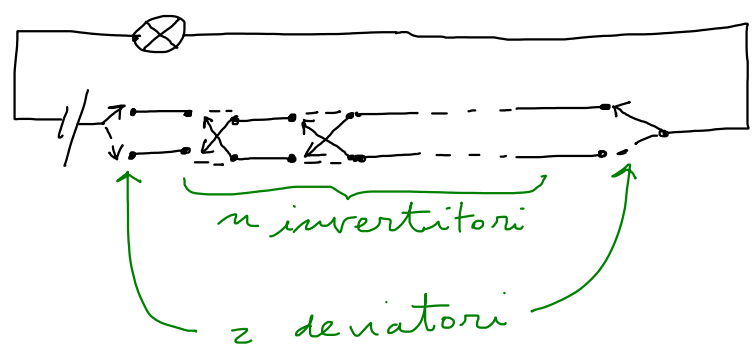 n invertitori
2 deviatori